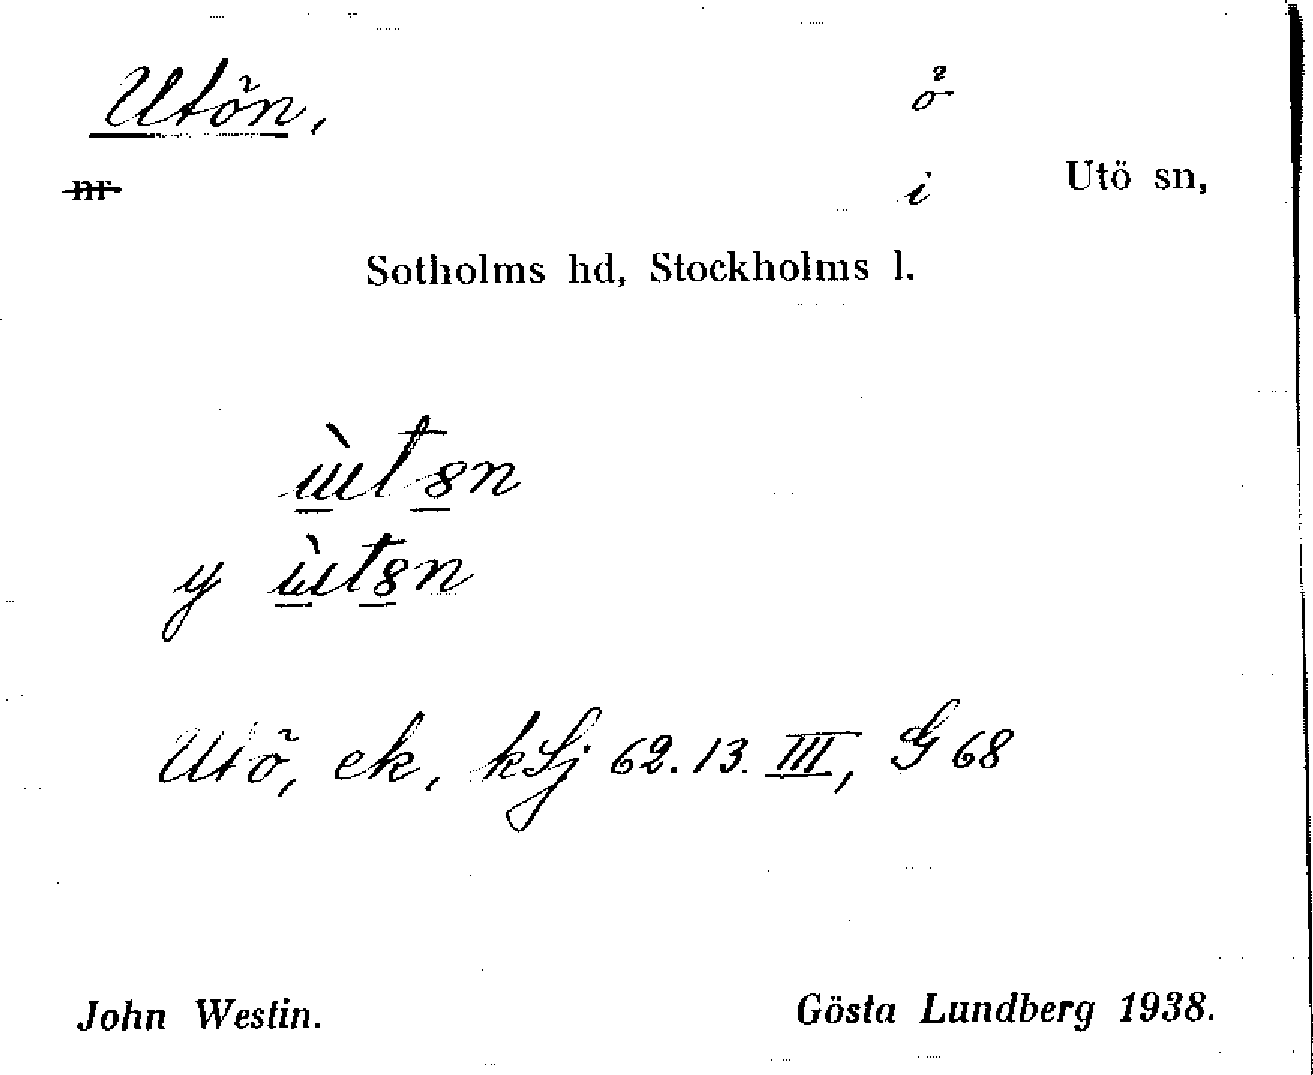 Utön, ö
nr i Utö sn,
Sotholms hd, Stockholms l.
ùt8n
y ùt8n
Utö, ek, kLj 62.13.III, G 68
John Westin. Gösta Lundberg 1938.